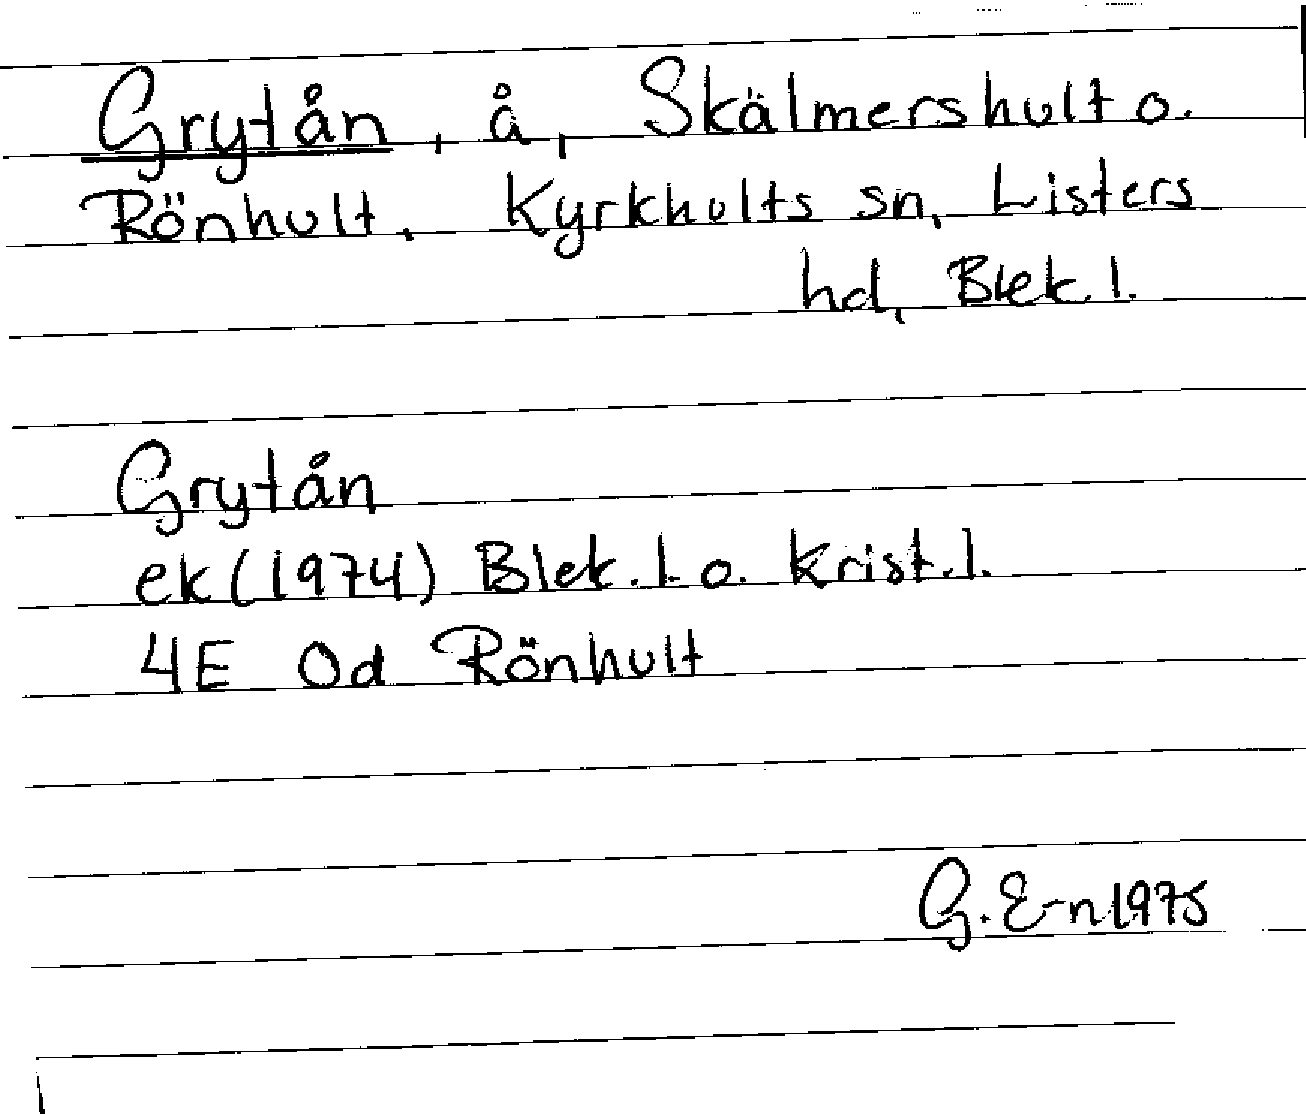 Grytån, å, Skälmershult o.
Rönhult, Kyrkhults sn, Listers
hd, Blek l.
Grytån
ek (1974) Blek. l. o. Krist. l.
4E 0d Rönhult
G. E-n 1975